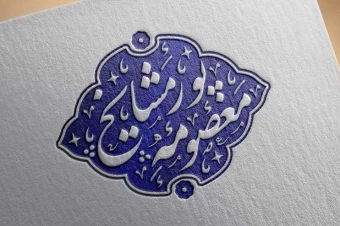 معصومه
پورمشایخ